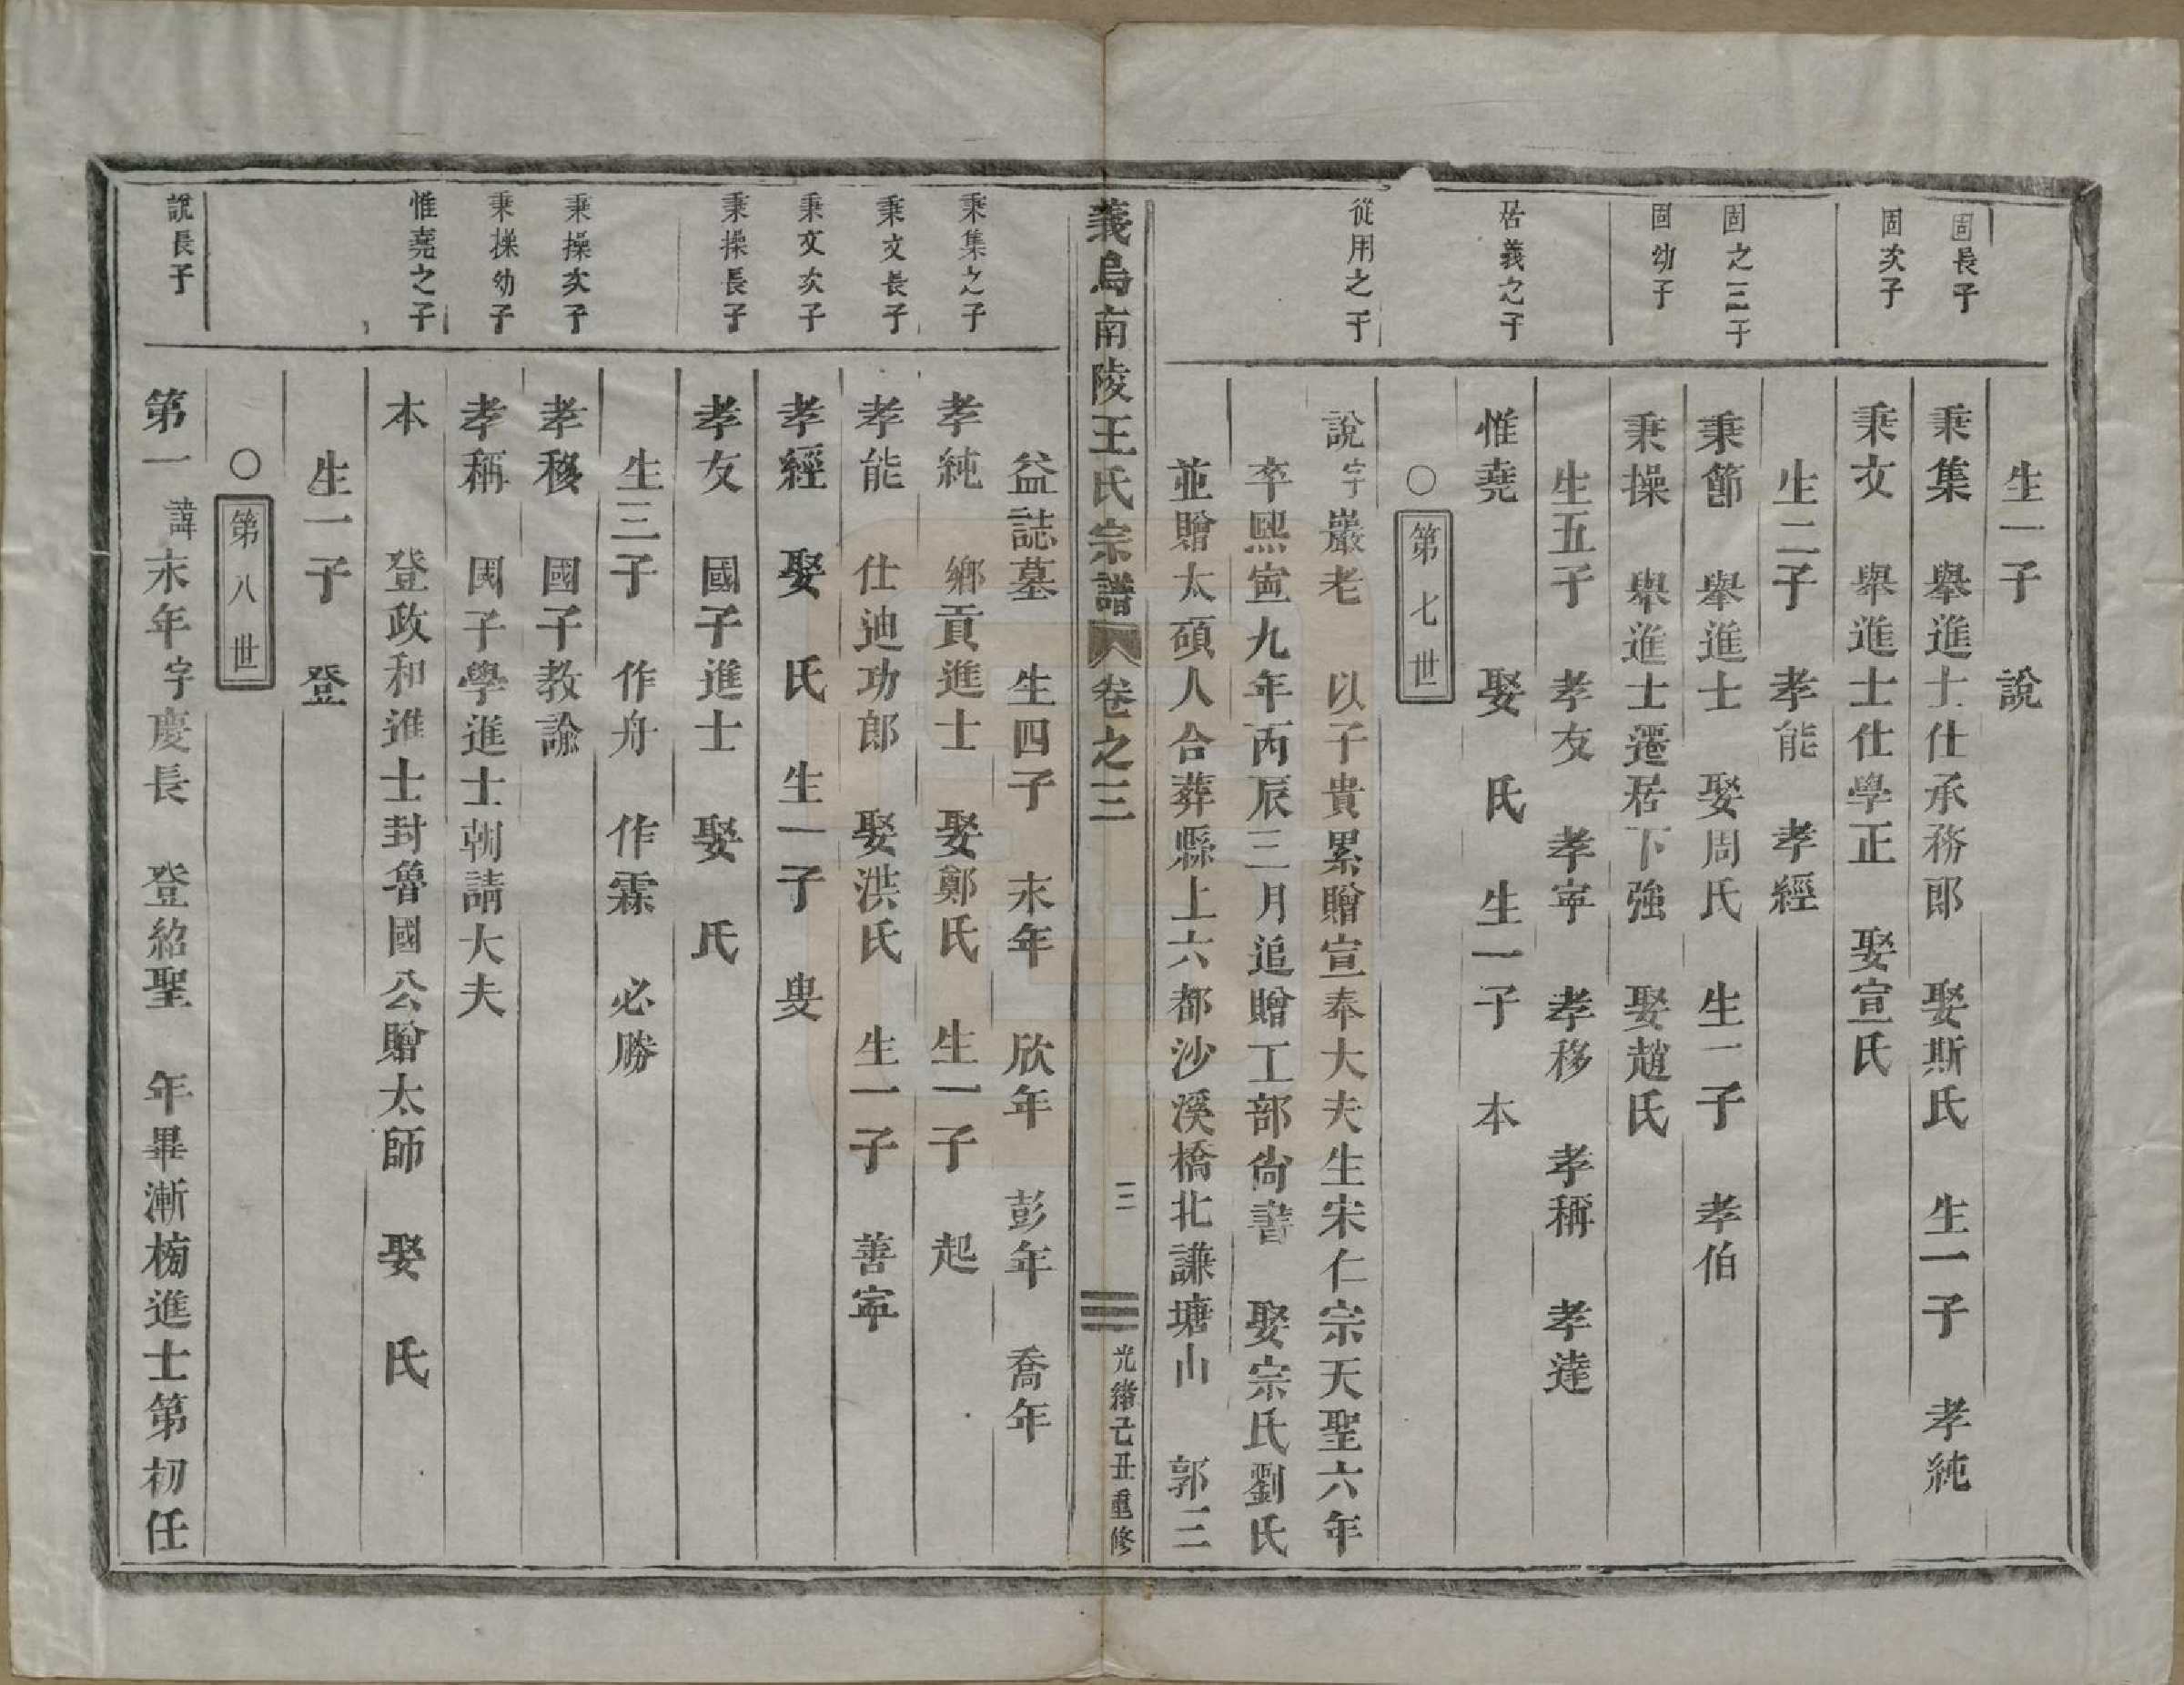 生一子　說
固長子　秉集　舉進士仕承務郎　娶斯氏　生一子　孝純
固次子　秉文　舉進士仕學正　娶宣氏
生二子　孝能　孝經
固之三子　秉節　舉進士　娶周氏　生一子　孝伯
固幼子　秉操　舉進士遷居下強　娶趙氏
生五子　孝友　孝寧　孝移　孝稱　孝達
居義之子　惟堯　娶　氏　生一子　本
○第七世
從用之子　說字巖老　以子貴累贈宣奉大夫生宋仁宗天聖六年
卒熙寧九年丙辰三月追贈工部尚書　娶宗氏劉氏
並贈太碩人合葬縣上六都沙溪橋北謙塘山　郭三
義烏南陵王氏宗譜　卷之三　三　光緒己丑重修
益誌墓　生四子　末年　欣年　彭年　喬年
秉集之子　孝純　鄉貢進士　娶鄭氏　生一子　起
秉文長子　孝能　仕迪功郎　娶洪氏　生一子　善寧
秉文次子　孝經　娶　氏　生一子　叟
秉操長子　孝友　國子進士　娶　氏
生三子　作舟　作霖　必勝
秉操次子　孝移　國子教諭
秉操幼子　孝稱　國子學進士朝請大夫
惟堯之子　本　登政和進士封魯國公贈太師　娶　氏
生一子　登
○第八世
說長子　第一諱末年字慶長　登紹聖　年畢漸榜進士第初任